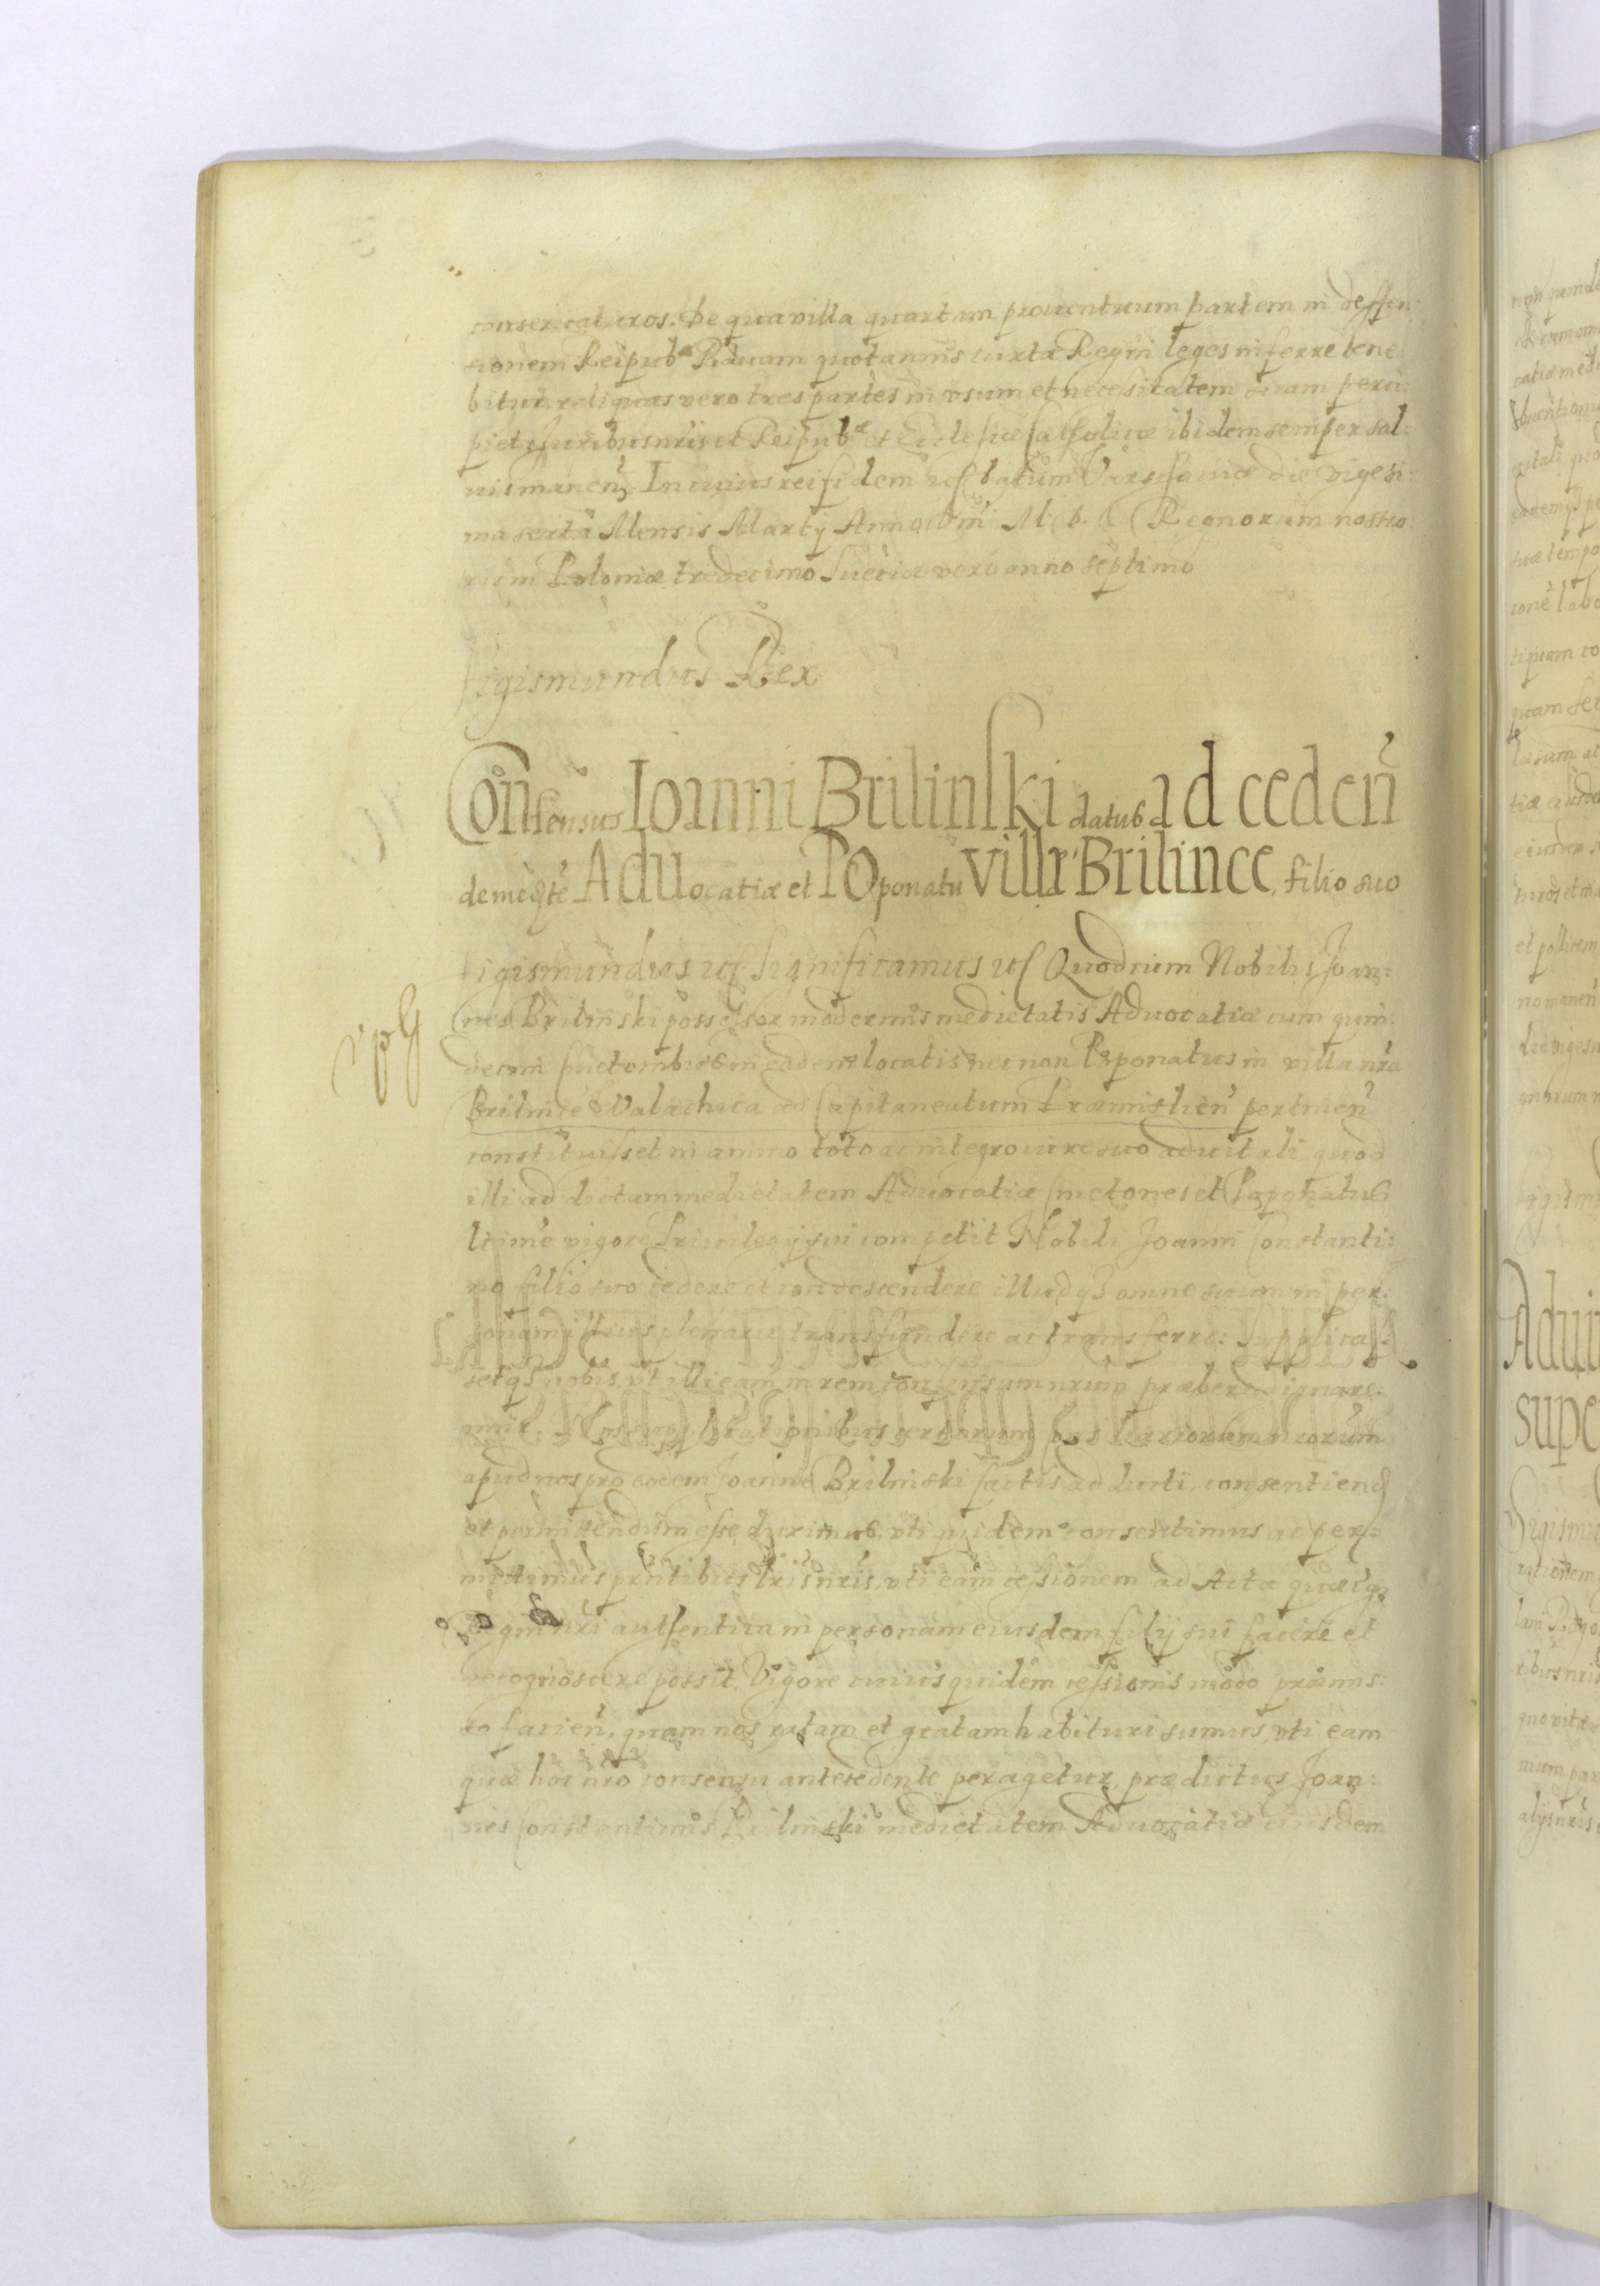 conseruaturos. De qua villa quartam prouentuum partem in deffen:
sionem Reipub: Rauam quotannis iuxta Regni leges inferre tene
bitur, reliquas vero tres partes in vsum et necessitatem suam perci:
piet, Iuribus nris et Reipub: et Ecclesiae Catholicae ibidem semper sal:
uis manen. In cuius rei fidem etc Datum Varssauiae die vigesi:
ma sexta Mensis Martij Anno Dni M. D. C. Regnorum nostro
rum Poloniae tredecimo Sueciae vero anno septimo
Sigismundus Rex
Consensus Ioanni Brilinski datus ad ceden
de medte Aduocatiae et Poponatu villae Brilince, filio suo
Sigismundus etc Significamus etc Quod cum Nobilis Joan:
nes Brilinski possessor modernus medietatis Aduocatiae cum quin:
decim Cmetonibus in eadem locatis necnon Poponatus in villa nra
Brilince Valachica ad Capitaneatum Praemislien pertinen
constituisset in animo toto ac integro iure suo aduitali quod
illi ad dictam medietatem Aduocatiae Cmetones et Poponatus
vigore Priuilegij sui competit Nobili Joanni Constanti:
no filio suo cedere et condescendere illudq3 omne suum in per:
sonam illius plenarie transfundere ac transferre: Supplicas:
setq3 nobis, vt illi eam in rem consensum nrum praebere dignare:
mur. Nos supplicationibus certorum Consiliariorum nrorum
apud nos pro eodem Joanne Brilinski factis adducti, consentiend
et permittendum esse duximus, vti quidem consentimus ac per:
mittimus pntibus lris nris, vti eam cessionem ad Acta quaeuq3
Regni nri authentica in personam eiusdem filij sui facere et
recognoscere possit. Vigore cuius quidem cessionis modo praemis:
so facien, quam nos ratam et gratam habituri sumus, vti eam
quae hoc nro consensu antecedente peragetur, praedictus Joan:
nes Constantinus Brilinski medietatem Aduocatiae eiusdem